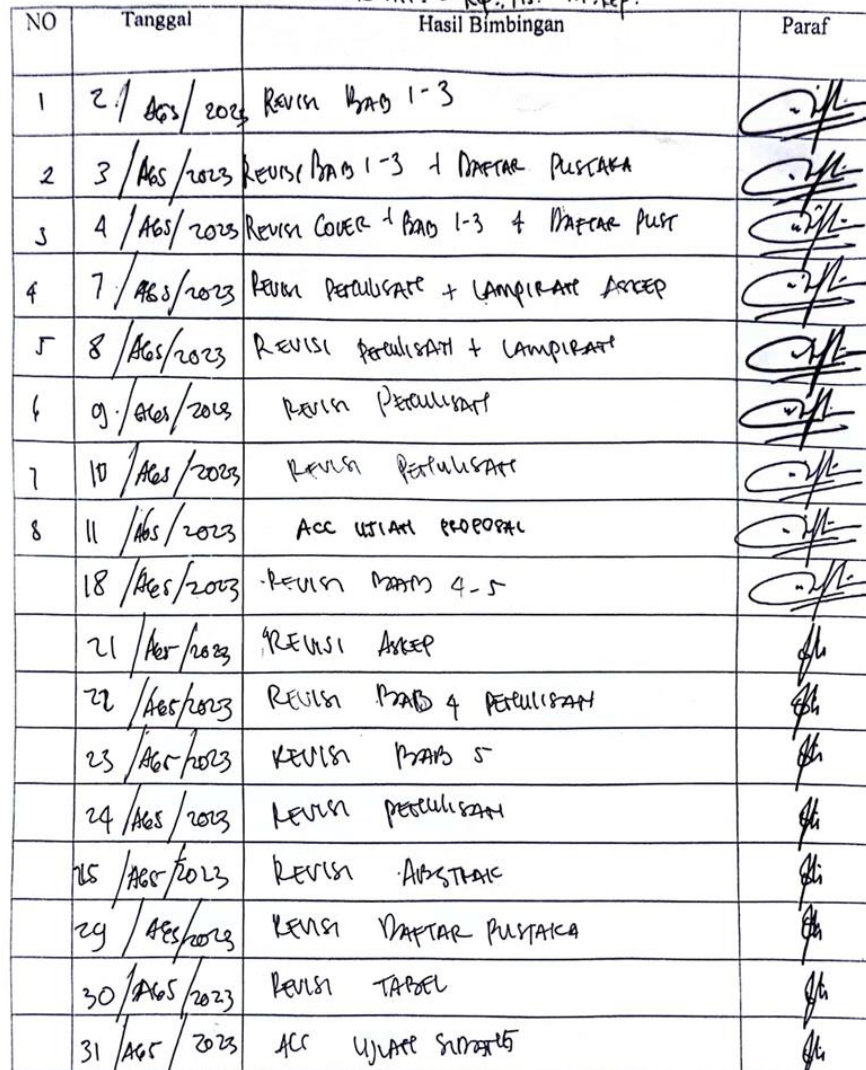 Kp., Ns. M.Kep.
NO Tanggal Hasil Bimbingan Paraf
1 2/AGS/2023 REVISI BAB 1-3
2 3/AGS/2023 REVISI BAB 1-3 + DAFTAR PUSTAKA
3 4/AGS/2023 REVISI COVER + BAB 1-3 + DAFTAR PUST
4 7/AGS/2023 REVISI PENULISAN + LAMPIRAN ASKEP
5 8/AGS/2023 REVISI PENULISAN + LAMPIRAN
6 9/AGS/2023 REVISI PENULISAN
7 10/AGS/2023 REVISI PENULISAN
8 11/AGS/2023 ACC UJIAN PROPOSAL
18/AGS/2023 REVISI BAB 4-5
21/AGS/2023 REVISI ASKEP
22/AGS/2023 REVISI BAB 4 PENULISAN
23/AGS/2023 REVISI BAB 5
24/AGS/2023 REVISI PENULISAN
25/AGS/2023 REVISI ABSTRAK
29/AGS/2023 REVISI DAFTAR PUSTAKA
30/AGS/2023 REVISI TABEL
31/AGS/2023 ACC UJIAN